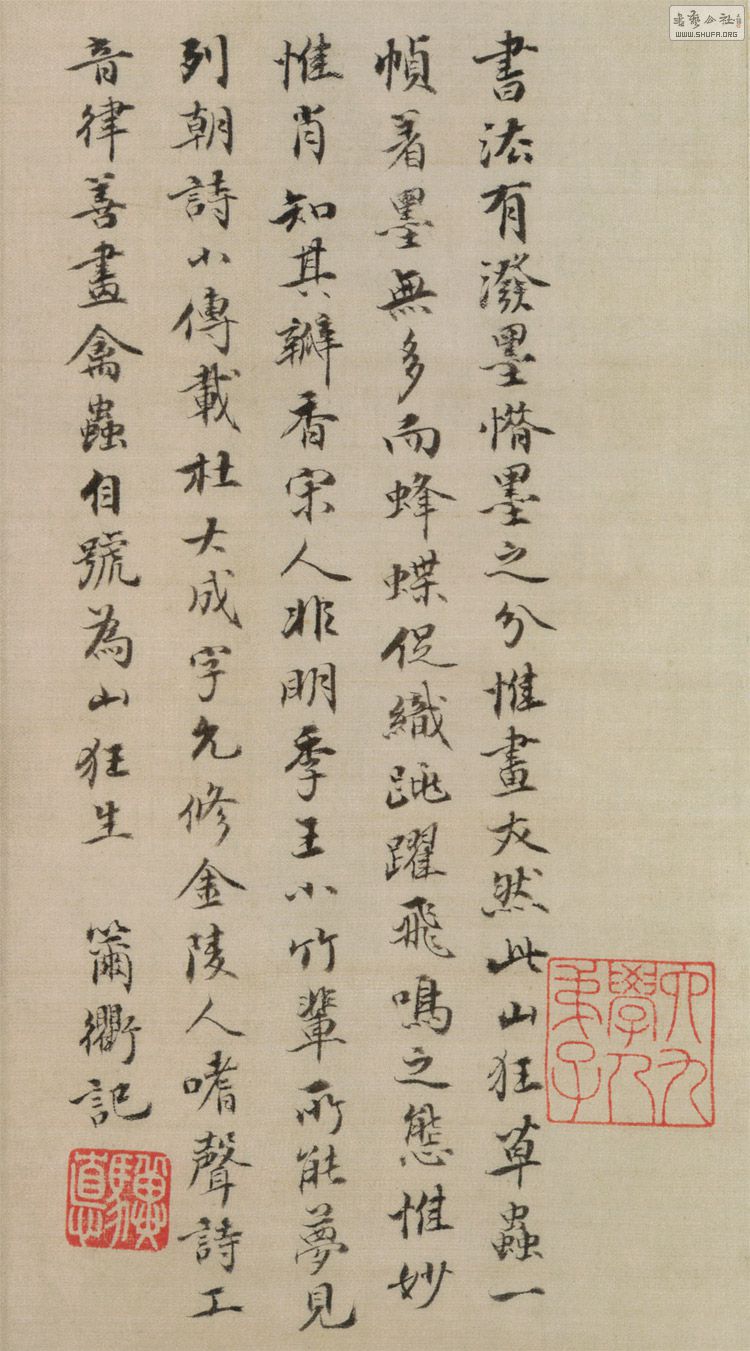 書法有潑墨惜墨之分惟畫亦然此山狂草蟲一
幀着墨無多而蜂蝶促織跳躍飛鳴之態惟妙
惟肖知其瓣香宋人非明季王小竹輩所能夢見
列朝詩小傳載杜大成字允修金陵人嗜聲詩工
音律善畫禽蟲自號為山狂生 篛衢記
六九學人弟子
書艺公社
WWW.SHUFA.ORG